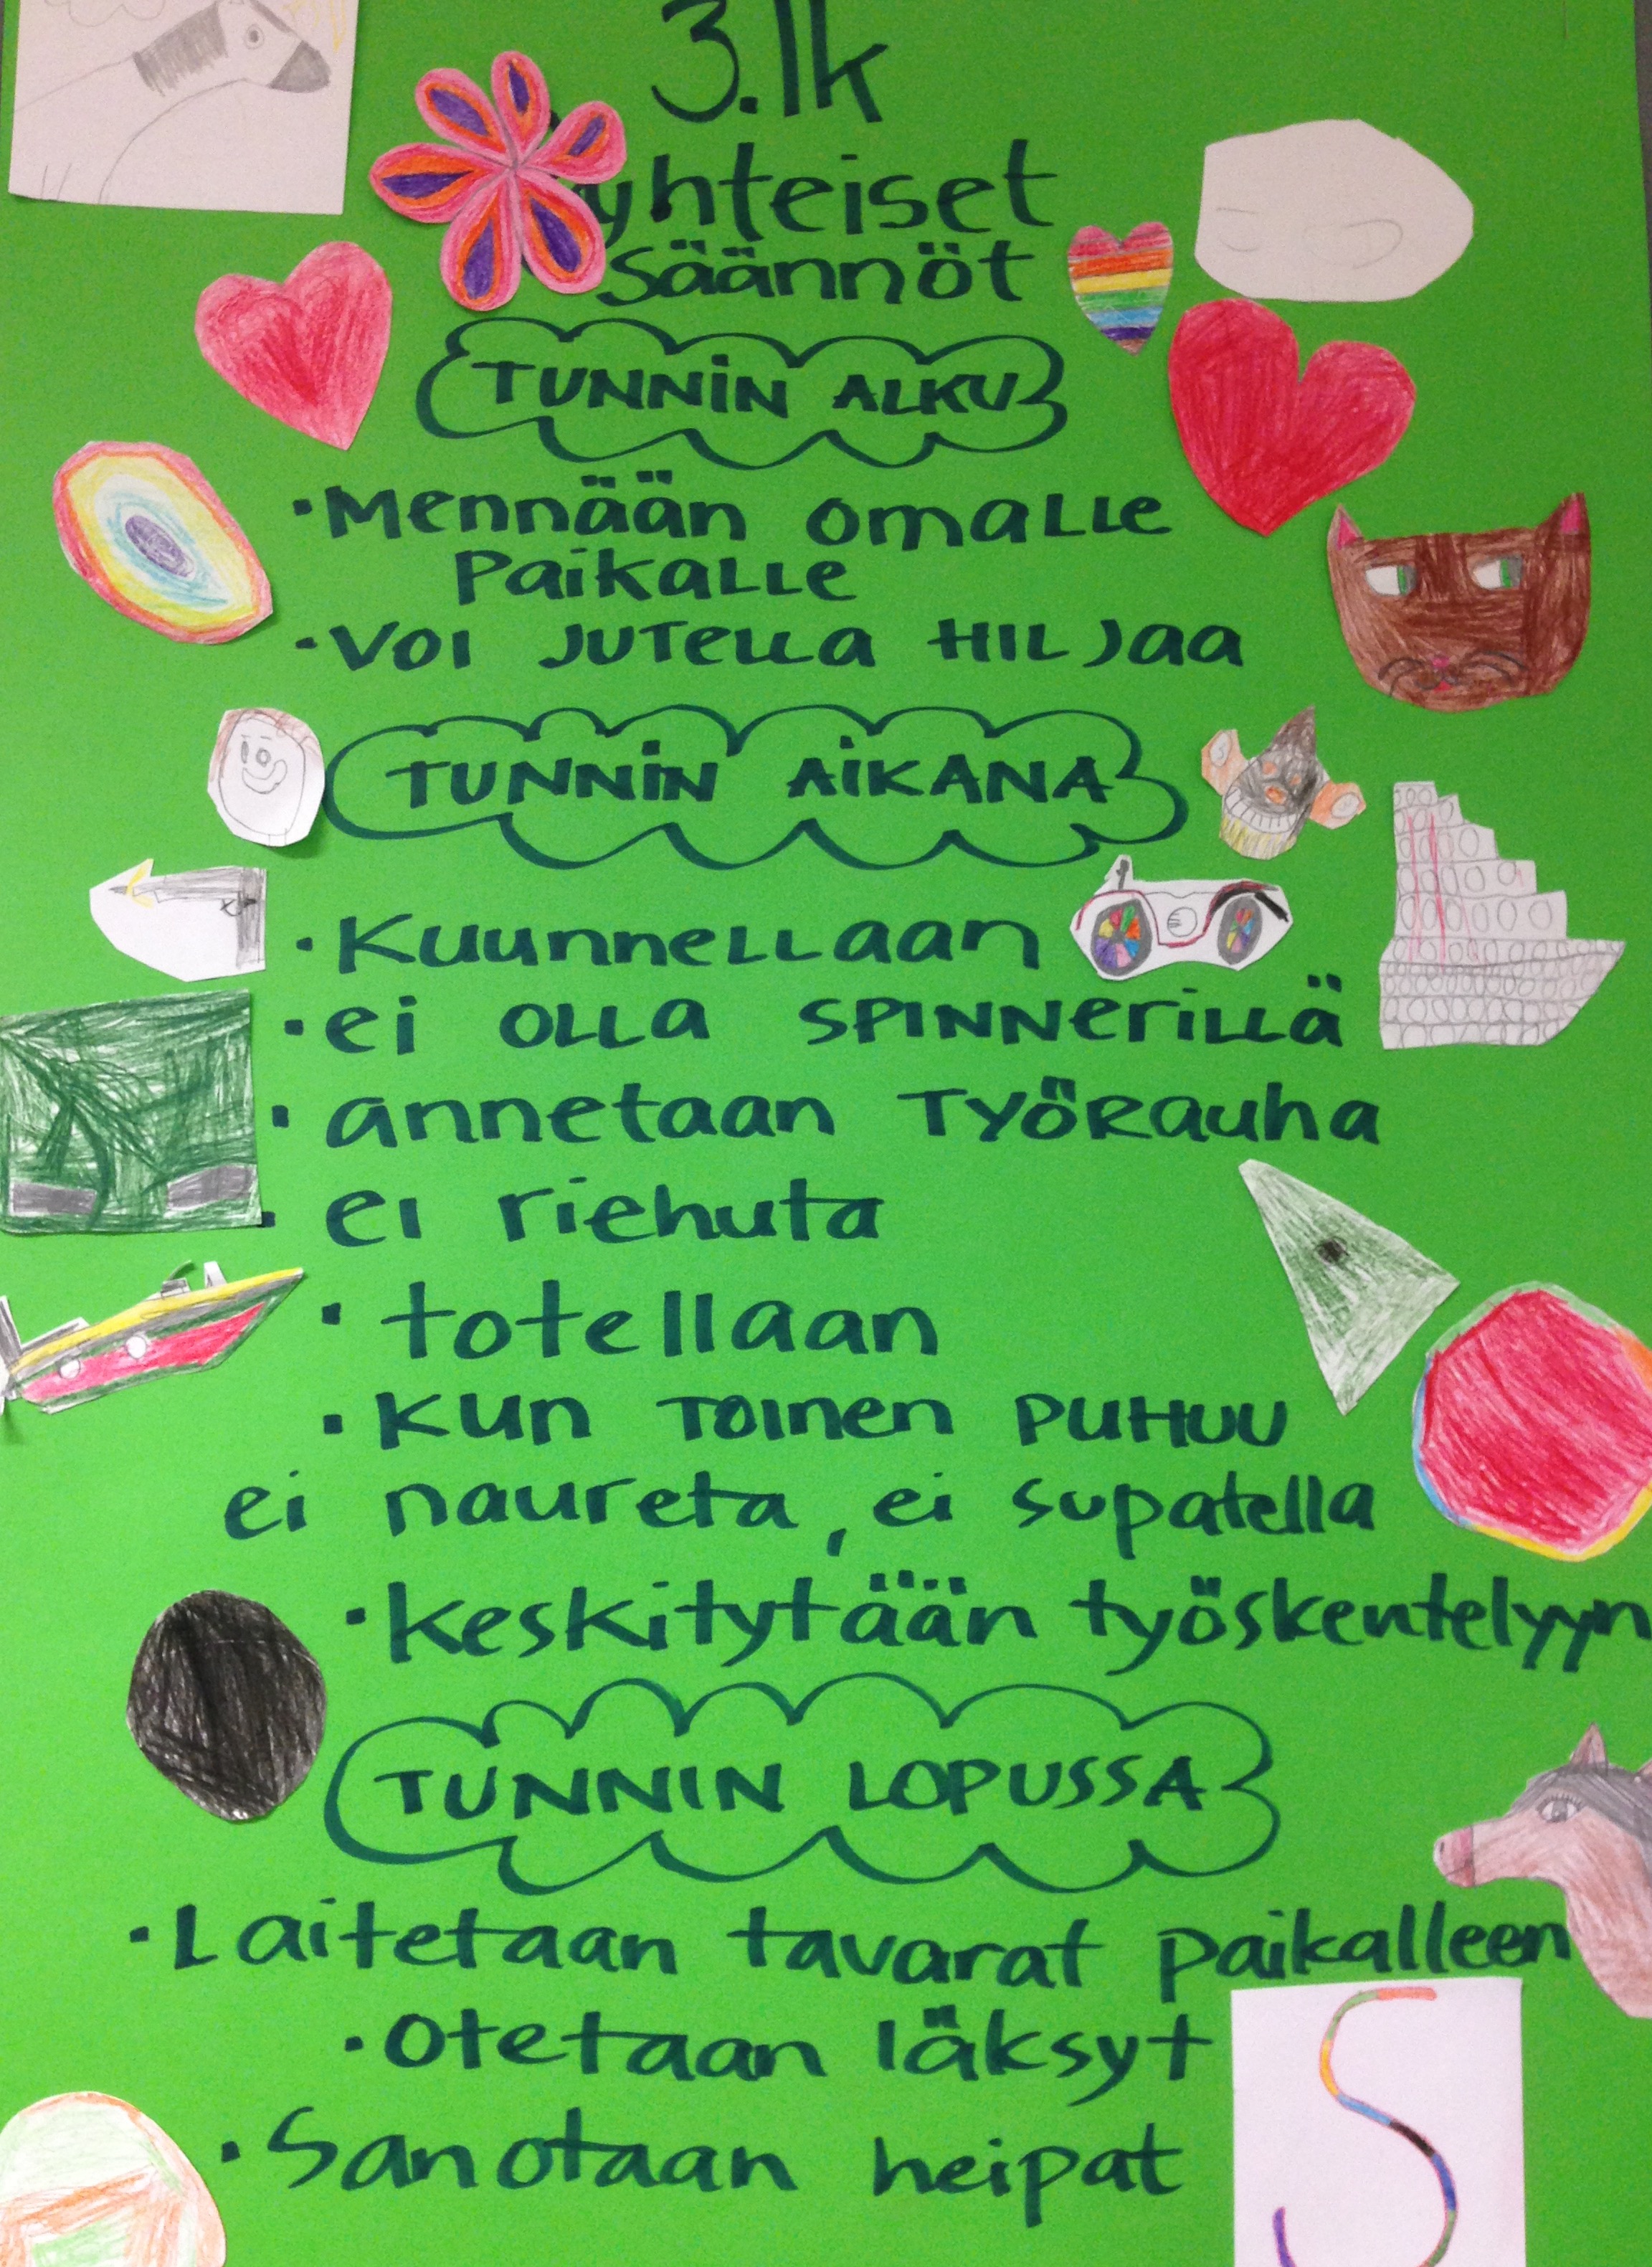 3.lk
yhteiset
säännöt
TUNNiN ALKU
·Mennään omaLLe
PaikaLLe
·VOI JUTeLLa HILJaa
TUNNiN AiKANA
·KuunneLLaan
·ei OLLa SPINNeriLLä
·annetaan TYÖRauha
·ei riehuta
·totellaan
·KUN TOINen PUHUU
ei naureta, ei supatella
·keskitytään työskentelyyn
TUNNIN LOPUSSA
·Laitetaan tavarat paikalleen
·Otetaan läksyt
·Sanotaan heipat
S